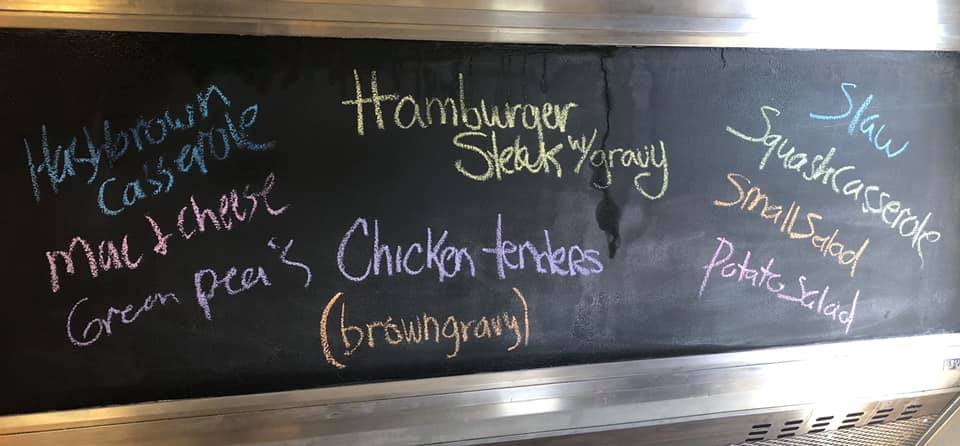 Hashbrown
Casserole
Mac & cheese
Green pea's
Hamburger
Steak w/gravy
Chicken tenders
(browngravy)
Slaw
Squash Casserole
Small Salad
Potato Salad